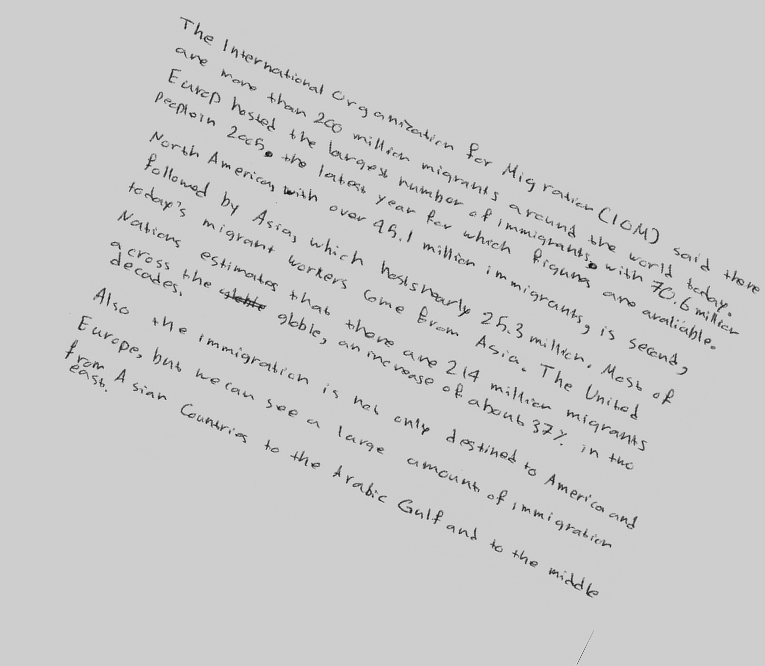 The International Organization for Migration (IOM) said there
are more than 200 million migrants around the world today.
Europ hosted the largest number of immigrants, with 70.6 million
peoplein 2005, the latest year for which figures are avaliable.
North America, with over 45.1 million immigrants, is second,
followed by Asia, which hosts nearly 25.3 million. Most of
today's migrant workers come from Asia. The United
Nations estimates that there are 214 million migrants
across the globle, an increase of about 37% in two
decades.
Also the immigration is not only destined to America and
Europe, but we can see a large amount of immigration
from Asian Countries to the Arabic Gulf and to the middle
east.